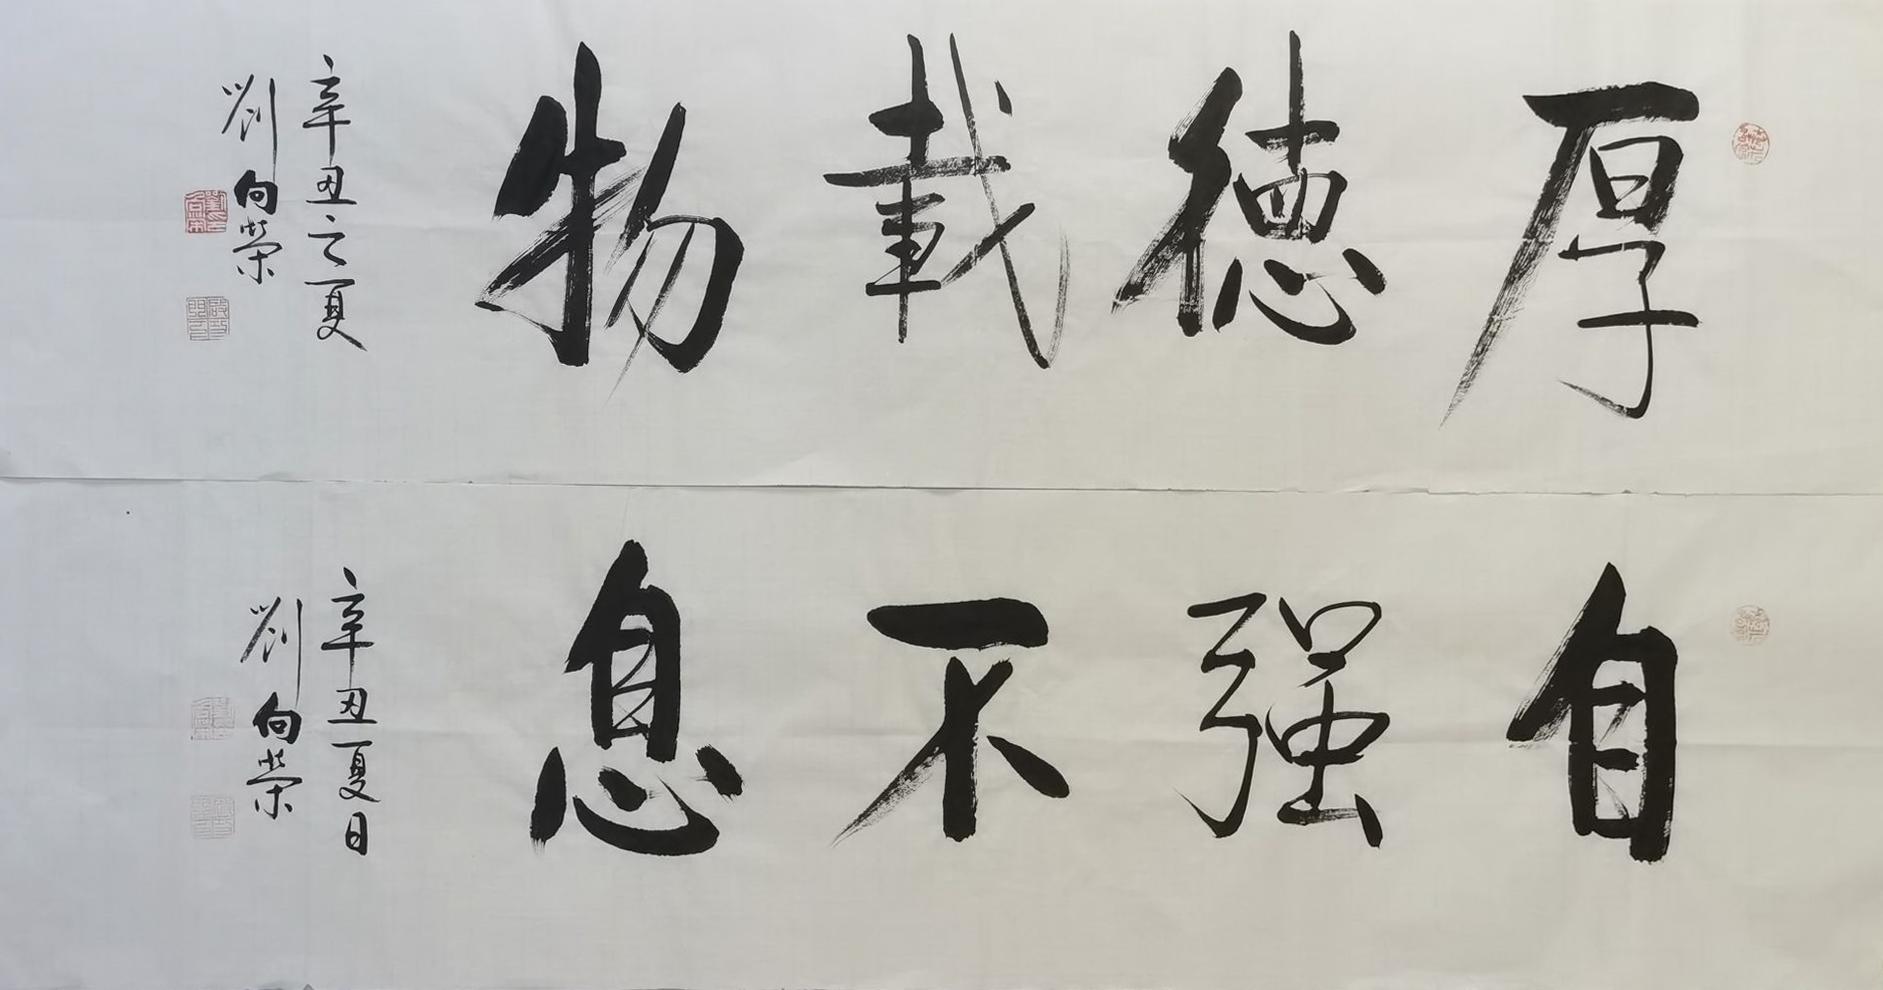 厚德載物
辛丑之夏
劉向榮
自强不息
辛丑夏日
劉向榮